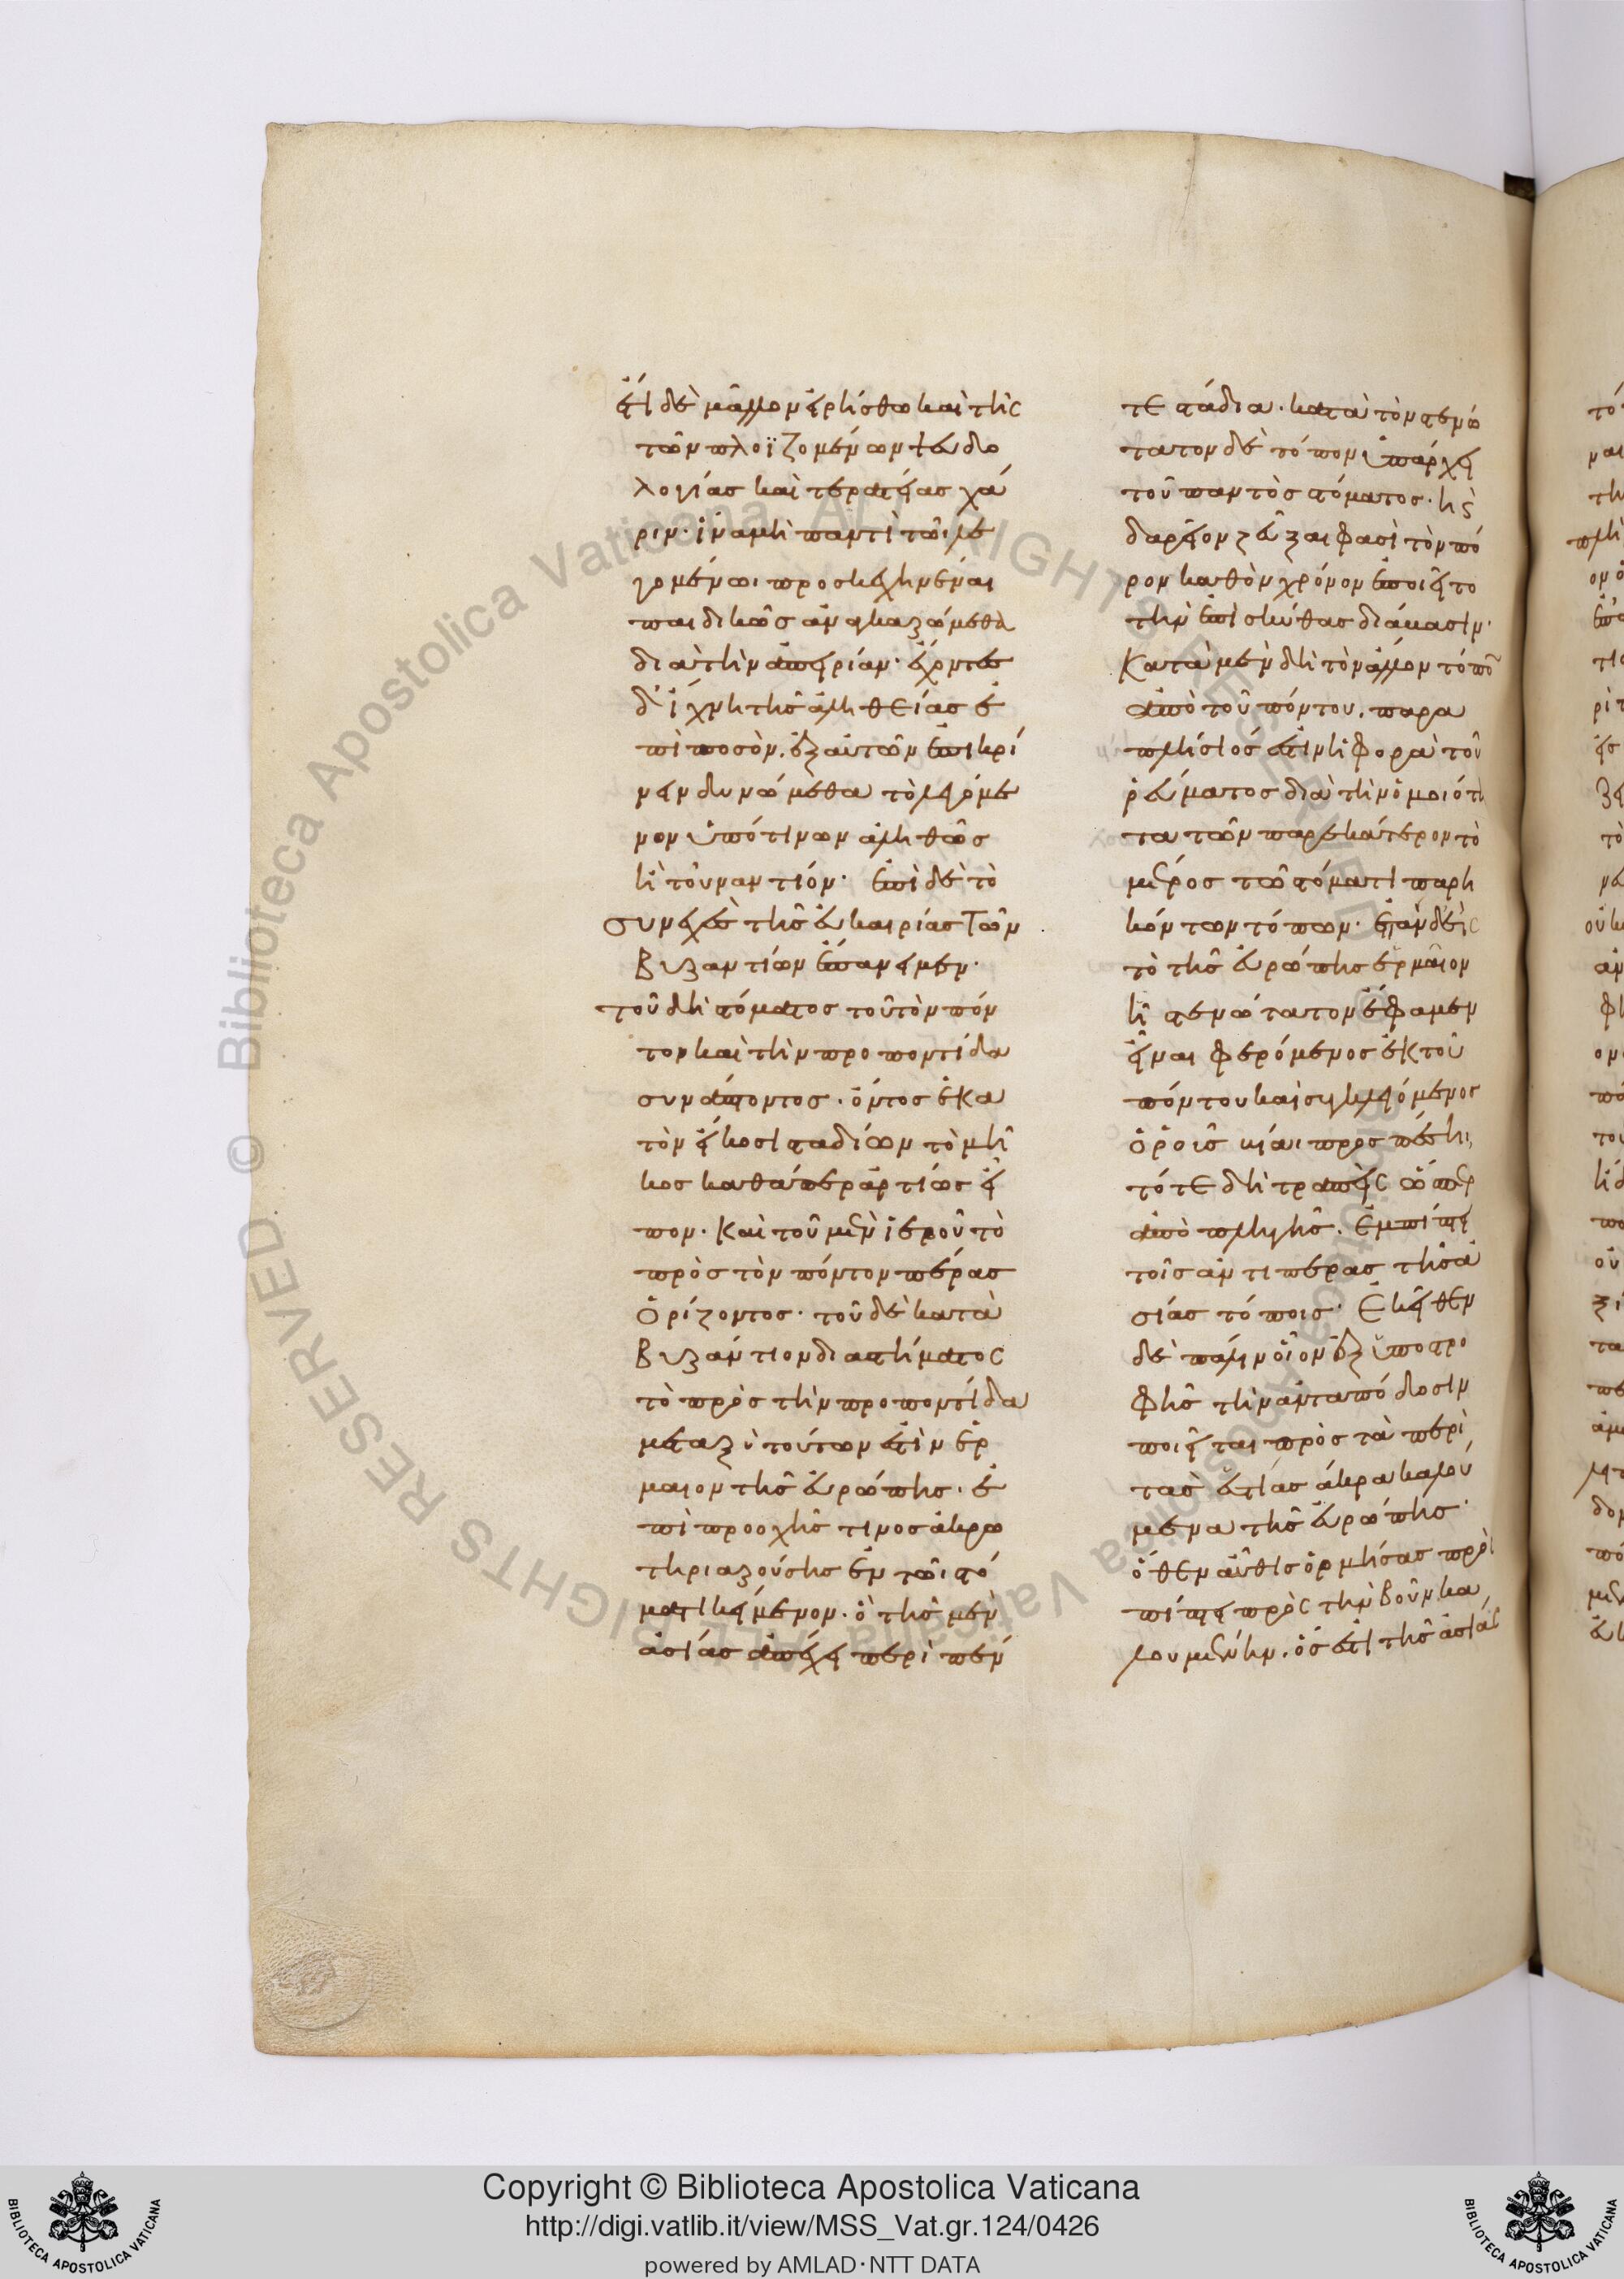 εἰ δὲ μᾶλλον εἰρήσθω καὶ τῆς
τῶν πλοϊζομένων ψευδο
λογίας καὶ τερατείας χά
ριν· ἵνα μὴ παντὶ τῶι λε
γομένωι προσκεχηνέναι
παιδικῶς ἀναγκαζώμεθα
διὰ τὴν ἀπειρίαν· ἔχοντες
δ' ἴχνη τῆς ἀληθείας ἐ
πὶ ποσὸν, ἐξ αὐτῶν ἐπικρί
νειν δυνώμεθα τὸ λεγόμε
νον ὑπό τινων ἀληθῶς
ἢ τοὐναντίον· ἐπὶ δὲ τὸ
συνεχὲς τῆς εὐκαιρίας τῶν
Βυζαντίων ἐπάνειμεν·
τοῦ δὴ στόματος τοῦ τὸν πόν
τον καὶ τὴν προποντίδα
συνάπτοντος· ὄντος ἑκα
τὸν εἴκοσι σταδίων τὸ μῆ
κος καθάπερ ἀρτίως εἶ
πον· καὶ τοῦ μὲν ἱεροῦ τὸ
πρὸς τὸν πόντον πέρας
ὁρίζοντος· τοῦ δὲ κατὰ
Βυζάντιον διαστήματος
τὸ πρὸς τὴν προποντίδα
μεταξὺ τούτων ἐστὶν ἑρ
μαιον τῆς εὐρώπης· ἐ
πὶ προοχῆς τινος ἀκρω
τηριαζούσης ἐν τῶι στό
ματι κείμενον· ὃ τῆς μὲν
ἀσίας ἀπέχει περὶ πέν
τε στάδια· κατὰ τὸν στενώ
τατον δὲ τόπον ὑπάρχει
τοῦ παντὸς στόματος· ἧς
δαρεῖον ζεῦξαι φασὶ τὸν πό
ρον καθ' ὃν χρόνον ἐποιεῖτο
τὴν ἐπὶ σκύθας διάβασιν·
κατὰ μὲν δὴ τὸν ἄλλον τόπον
ἀπὸ τοῦ πόντου, παρα
πλήσιός ἐστιν ἡ φορὰ τοῦ
ῥεύματος διὰ τὴν ὁμοιότη
τα τῶν παρ' ἑκάτερον τὸ
μέρος τῶ στόματι παρη
κόντων τόπων· ἐπὰν δ' εἰς
τὸ τῆς εὐρώπης ἑρμαῖον
ἧ στενώτατον ἔφαμεν
εἶναι φερόμενος ἐκ τοῦ
πόντου καὶ συγκλειόμενος
ὁ ῥοῦς βίαι προσπέσηι,
τότε δὴ τραπεὶς ὥσπερ
ἀπὸ πληγῆς· ἐμπίπτει
τοῖς ἀντιπέρας τῆς ἀ
σίας τόποις· ἐκεῖθεν
δὲ πάλιν οἷον ἐξ ὑποστρο
φῆς τὴν ἀνταπόδοσιν
ποιεῖται πρὸς τὰ περὶ
τὰς ἑστίας ἄκρα καλού
μενα τῆς εὐρώπης·
ὅθεν αὖθις ὁρμήσας προσ
πίπτει πρὸς τὴν βοῦν κα
λουμένην· ὅς ἐστι τῆς ἀσίας